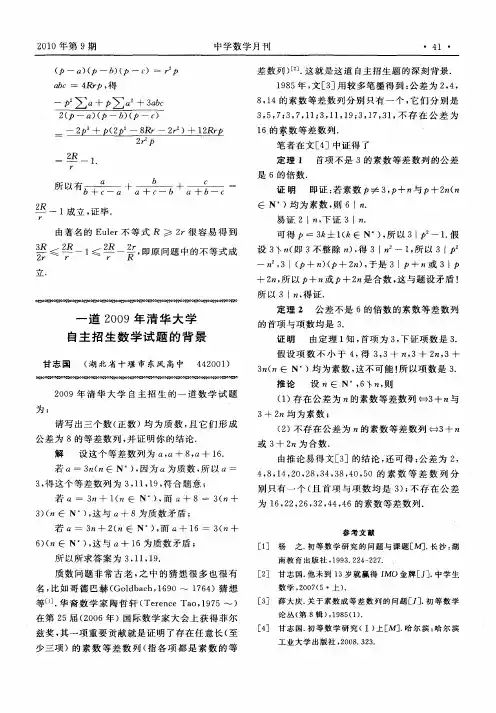 2010 年第 9 期
中学数学月刊
· 41 ·
(p－a)(p－b)(p－c) = r²p
abc = 4Rrp,得
－p²∑a + p∑a² + 3abc
2(p－a)(p－b)(p－c)
= －2p³ + p(2p²－8Rr－2r²) + 12Rrp
2r²p
= 2R/r －1.
所以有 a/(b＋c－a) + b/(a＋c－b) + c/(a＋b－c) =
2R/r －1 成立,证毕.
由著名的 Euler 不等式 R ≥ 2r 很容易得到
3R/2r ≤ 2R/r －1 ≤ 2R/r － 2r/R,即原问题中的不等式成
立.
一道 2009 年清华大学
自主招生数学试题的背景
甘志国 (湖北省十堰市东风高中 442001)
2009 年清华大学自主招生的一道数学试题
为:
请写出三个数(正数)均为质数,且它们形成
公差为 8 的等差数列,并证明你的结论.
解 设这个等差数列为 a,a＋8,a＋16.
若 a＝3n(n∈N*),因为 a 为质数,所以 a＝
3,得这个等差数列为 3,11,19,符合题意;
若 a＝3n＋1(n∈N*),而 a＋8＝3(n＋
3)(n∈N*),这与 a＋8 为质数矛盾;
若 a＝3n＋2(n∈N*),而 a＋16＝3(n＋
6)(n∈N*),这与 a＋16 为质数矛盾;
所以所求答案为 3,11,19.
质数问题非常古老,之中的猜想很多也很有
名,比如哥德巴赫(Goldbach,1690 ～ 1764) 猜想
等[1]. 华裔数学家陶哲轩(Terence Tao,1975 ～)
在第 25 届(2006 年) 国际数学家大会上获得菲尔
兹奖,其一项重要贡献就是证明了存在任意长(至
少三项)的素数等差数列(指各项都是素数的等
差数列)[2]. 这就是这道自主招生题的深刻背景.
1985 年,文[3]用较多笔墨得到:公差为 2,4,
8,14 的素数等差数列分别只有一个,它们分别是
3,5,7;3,7,11;3,11,19;3,17,31,不存在公差为
16 的素数等差数列.
笔者在文[4]中证得了
定理 1 首项不是 3 的素数等差数列的公差
是 6 的倍数.
证明 即证:若素数 p≠3,p＋n 与 p＋2n(n
∈N*)均为素数,则 6∣n.
易证 2∣n,下证 3∣n.
可得 p＝3k±1(k∈N*),所以 3∣p²－1. 假
设 3∤n(即 3 不整除 n),得 3∣n²－1,所以 3∣p²
－n²,3∣(p＋n)(p＋2n),于是 3∣p＋n 或 3∣p
＋2n,所以 p＋n 或 p＋2n 是合数,这与题设矛盾!
所以 3∣n,得证.
定理 2 公差不是 6 的倍数的素数等差数列
的首项与项数均是 3.
证明 由定理 1 知,首项为 3,下证项数是 3.
假设项数不小于 4,得 3,3＋n,3＋2n,3＋
3n(n∈N*) 均为素数,这不可能!所以项数是 3.
推论 设 n∈N*,6∤n,则
(1)存在公差为 n 的素数等差数列⇔3＋n 与
3＋2n 均为素数;
(2) 不存在公差为 n 的素数等差数列⇔3＋n
或 3＋2n 为合数.
由推论易得文[3]的结论,还可得:公差为 2,
4,8,14,20,28,34,38,40,50 的素数等差数列分
别只有一个(且首项与项数均是 3);不存在公差
为 16,22,26,32,44,46 的素数等差数列.
参考文献
[1] 杨 之.初等数学研究的问题与课题[M].长沙:湖
南教育出版社,1993.224-227.
[2] 甘志国.他未到 13 岁就赢得 IMO 金牌[J].中学生
数学,2007(5·上).
[3] 薛大庆.关于素数成等差数列的问题[J].初等数学
论丛(第 8 辑),1985(1).
[4] 甘志国.初等数学研究(Ⅰ)上[M].哈尔滨:哈尔滨
工业大学出版社,2008.323.